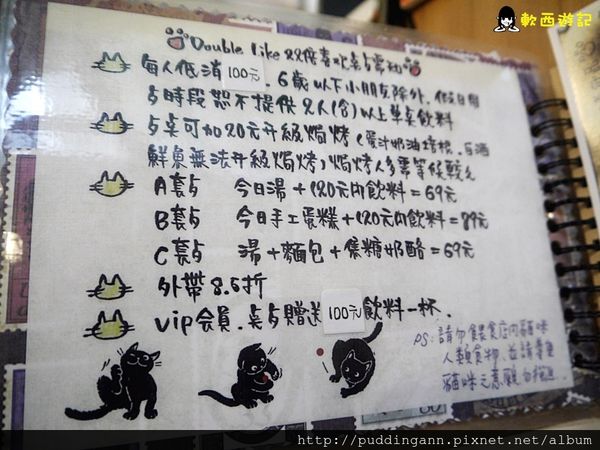 軟西遊記
Double like 22倍喜歡點餐初
每人低消100元. 6歲以下小朋友除外. 假日用
餐時段恕不提供2人(含)以上單桌飲料
餐桌可加20元升級焗烤(蛋汁奶油培根、
鮮魚無法升級焗烤)焗烤人多需等候較久
A套餐 今日湯+120元內飲料=69元
B套餐 今日手工蛋糕+120元內飲料=89元
C套餐 湯+麵包+焦糖奶酪=69元
外帶8.5折
vip会員.桌餐贈送100元飲料一杯.
PS:請勿餵食店內貓咪
人類食物,並請尊重
貓咪之意願勿強迫
http://puddingann.pixnet.net/album